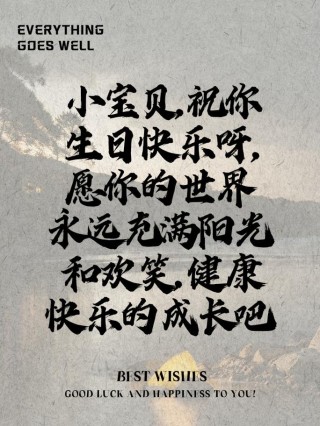 EVERYTHING
GOES WELL
小宝贝,祝你
生日快乐呀,
愿你的世界
永远充满阳光
和欢笑,健康
快乐的成长吧
BEST WISHES
GOOD LUCK AND HAPPINESS TO YOU!